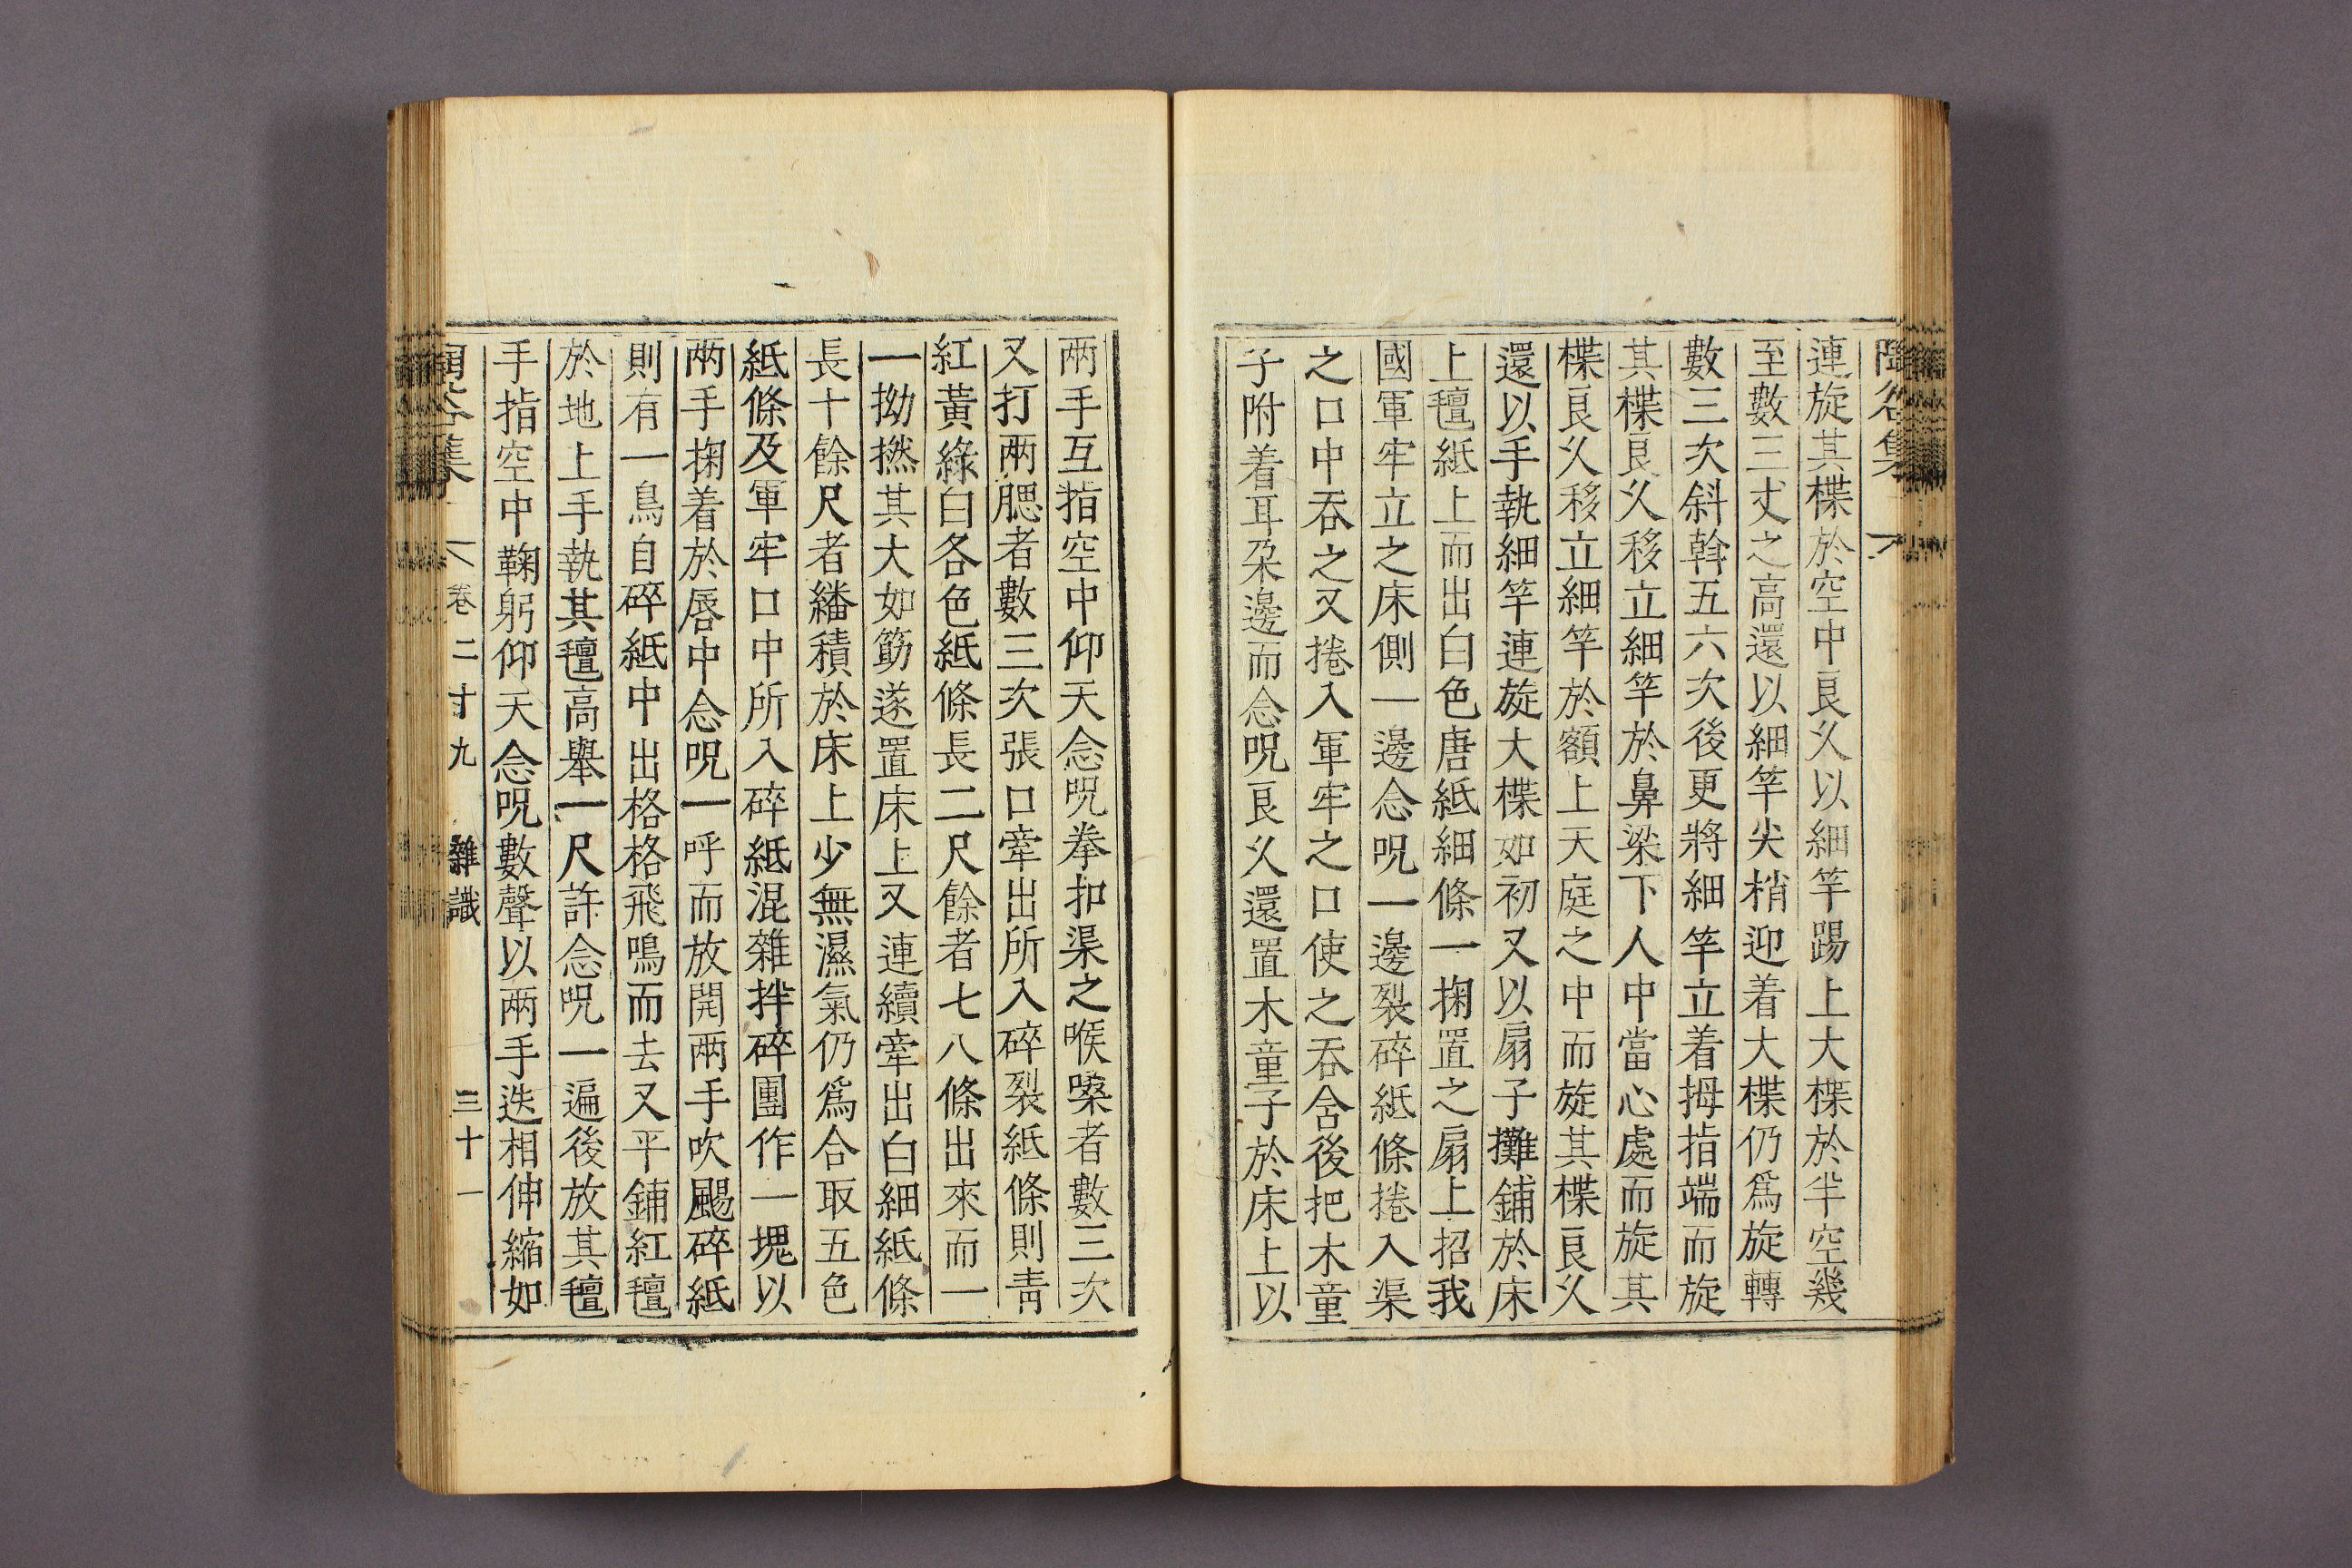 連旋其楪於空中良久以細竿踢上大楪於半空幾
至數三丈之高還以細竿尖梢迎着大楪仍爲旋轉
數三次斜斡五六次後更將細竿立着拇指端而旋
其楪良久移立細竿於鼻梁下人中當心處而旋其
楪良久移立細竿於額上天庭之中而旋其楪良久
還以手執細竿連旋大楪如初又以扇子攤鋪於床
上氊紙上而出白色唐紙細條一掬置之扇上招我
國軍牢立之床側一邊念呪一邊裂碎紙條捲入渠
之口中吞之又捲入軍牢之口使之吞含後把木童
子附着耳朶邊而念呪良久還置木童子於床上以
兩手互指空中仰天念呪拳扣渠之喉嗓者數三次
又打兩腮者數三次張口牽出所入碎裂紙條則靑
紅黃綠白各色紙條長二尺餘者七八條出來而一
一拗撚其大如筯遂置床上又連續牽出白細紙條
長十餘尺者繙積於床上少無濕氣仍爲合取五色
紙條及軍牢口中所入碎紙混雜拌碎團作一塊以
兩手掬着於唇中念呪一呼而放開兩手吹颺碎紙
則有一鳥自碎紙中出格格飛鳴而去又平鋪紅氊
於地上手執其氊高舉一尺許念呪一遍後放其氊
手指空中鞠躬仰天念呪數聲以兩手迭相伸縮如
集 卷二十九 雜識 三十一